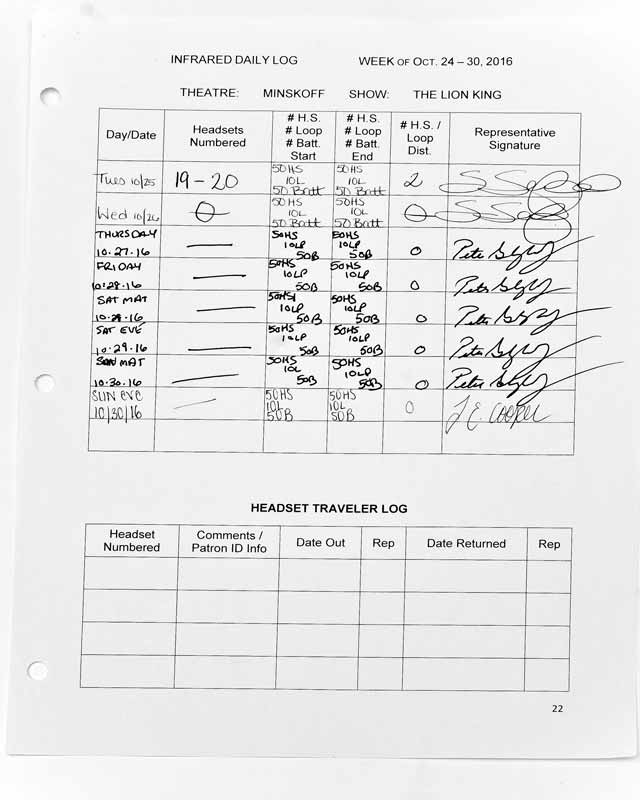 INFRARED DAILY LOG WEEK OF OCT. 24 – 30, 2016
THEATRE: MINSKOFF SHOW: THE LION KING
Day/Date Headsets Numbered # H.S. # Loop # Batt. Start # H.S. # Loop # Batt. End # H.S. / Loop Dist. Representative Signature
Tues 10/25 19-20 50HS 10L 50 Batt 50HS 10L 50 Batt 2
Wed 10/26 0 50HS 10L 50 Batt 50HS 10L 50 Batt 0
THURSDAY 10.27.16 — 50HS 10LP 50B 50HS 10LP 50B 0 Pete
FRIDAY 10.28.16 — 50HS 10LP 50B 50HS 10LP 50B 0 Pete
SAT MAT 10.29.16 — 50HS 10LP 50B 50HS 10LP 50B 0 Pete
SAT EVE 10.29.16 — 50HS 10LP 50B 50HS 10LP 50B 0 Pete
SUN MAT 10.30.16 — 50HS 10L 50B 50HS 10LP 50B 0 Pete
SUN EVE 10/30/16 — 50HS 10L 50B 50HS 10L 50B 0 J E. COOPER
HEADSET TRAVELER LOG
Headset Numbered Comments / Patron ID Info Date Out Rep Date Returned Rep
22